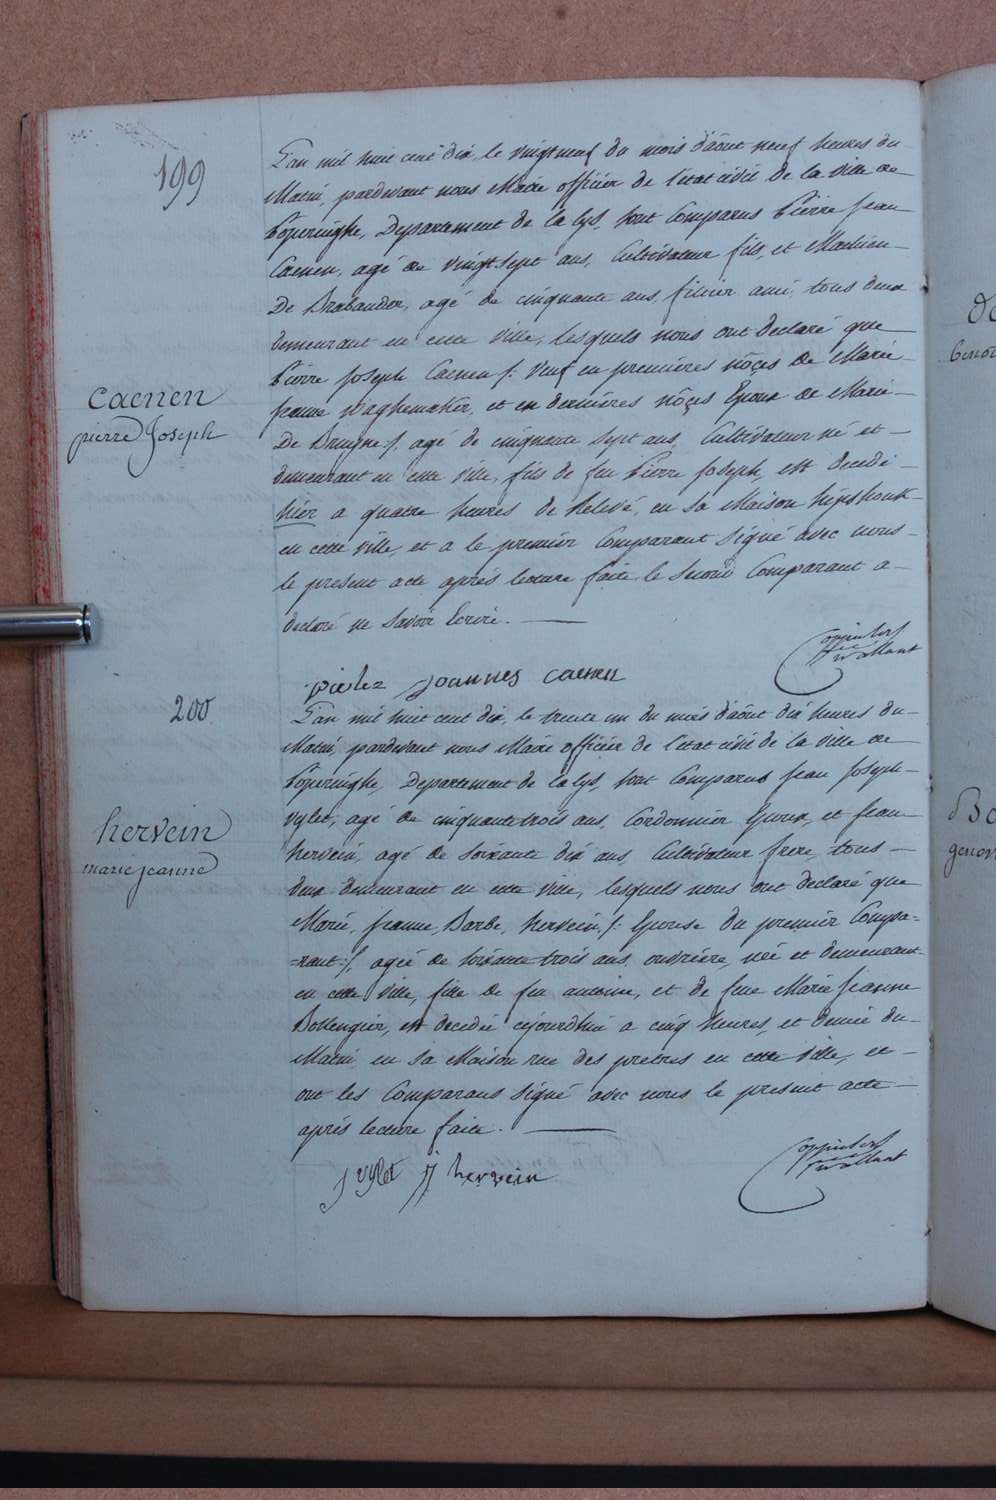 199
L'an mil huit cent dix, le vingtneuf du mois d'août neuf heures du
Matin, pardevant nous Maire officier de l'etat civil de la ville de
Poperinghe, Departement de la Lys, sont Comparus Pierre Jean
Caenen, agé de vingt sept ans, Cultivateur fils, et Mathieu
De Brabander, agé de cinquante ans, filtier ami, tous deux
demeurant en cette ville, lesquels nous ont declaré que
Caenen
pierre Joseph
Pierre Joseph Caenen /: Veuf en premières nôçes de Marie
Jeanne Waghemaker, et en dernières nôçes Epoux de Marie
De Bruyne :/ agé de cinquante sept ans, Cultivateur né et
demeurant en cette ville, fils de feu Pierre Joseph, est decedé
hier a quatre heures de Relevé, en sa Maison
en cette ville, et a le premier Comparant signé avec nous
le present acte après lecture faite, le second Comparant a
declaré ne savoir Ecrire.
pieter joannes caenen
200
L'an mil huit cent dix, le trente un du mois d'août dix heures du
Matin, pardevant nous Maire officier de l'etat civil de la ville de
Poperinghe, Departement de la Lys, sont Comparus Jean Joseph
Vylet, agé de cinquante trois ans, Cordonnier Epoux, et Jean
hervein
marie jeanne
hervein, agé de soixante dix ans, Cultivateur frere, tous
deux demeurant en cette ville, lesquels nous ont declaré que
Marie, Jeanne, Barbe, hervein, /: Epouse du premier Compa=
=rant :/, agée de soixante trois ans, ouvrière, née et demeurant
en cette ville, fille de feu antoine, et de feue Marie Jeanne
Bollenguier, est decedée cejourdhui a cinq heures, et demie du
Matin, en sa Maison rue des prètres en cette ville, et
ont les Comparans signé avec nous le present acte
après lecture faite.
j vylet jj hervein
De
Bo